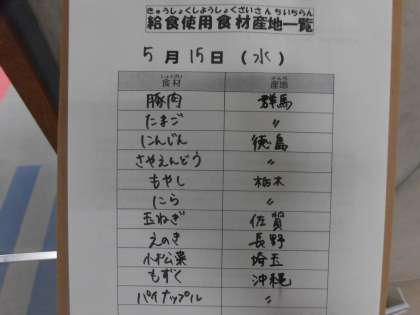 きゅうしょくしようしょくざいさんちいちらん
給食使用食材産地一覧
5月15日(水)
しょくざい さんち
食材 産地
豚肉 群馬
たまご 〃
にんじん 徳島
さやえんどう 〃
もやし 栃木
にら 〃
玉ねぎ 佐賀
えのき 長野
小松菜 埼玉
もずく 沖縄
パイナップル 〃